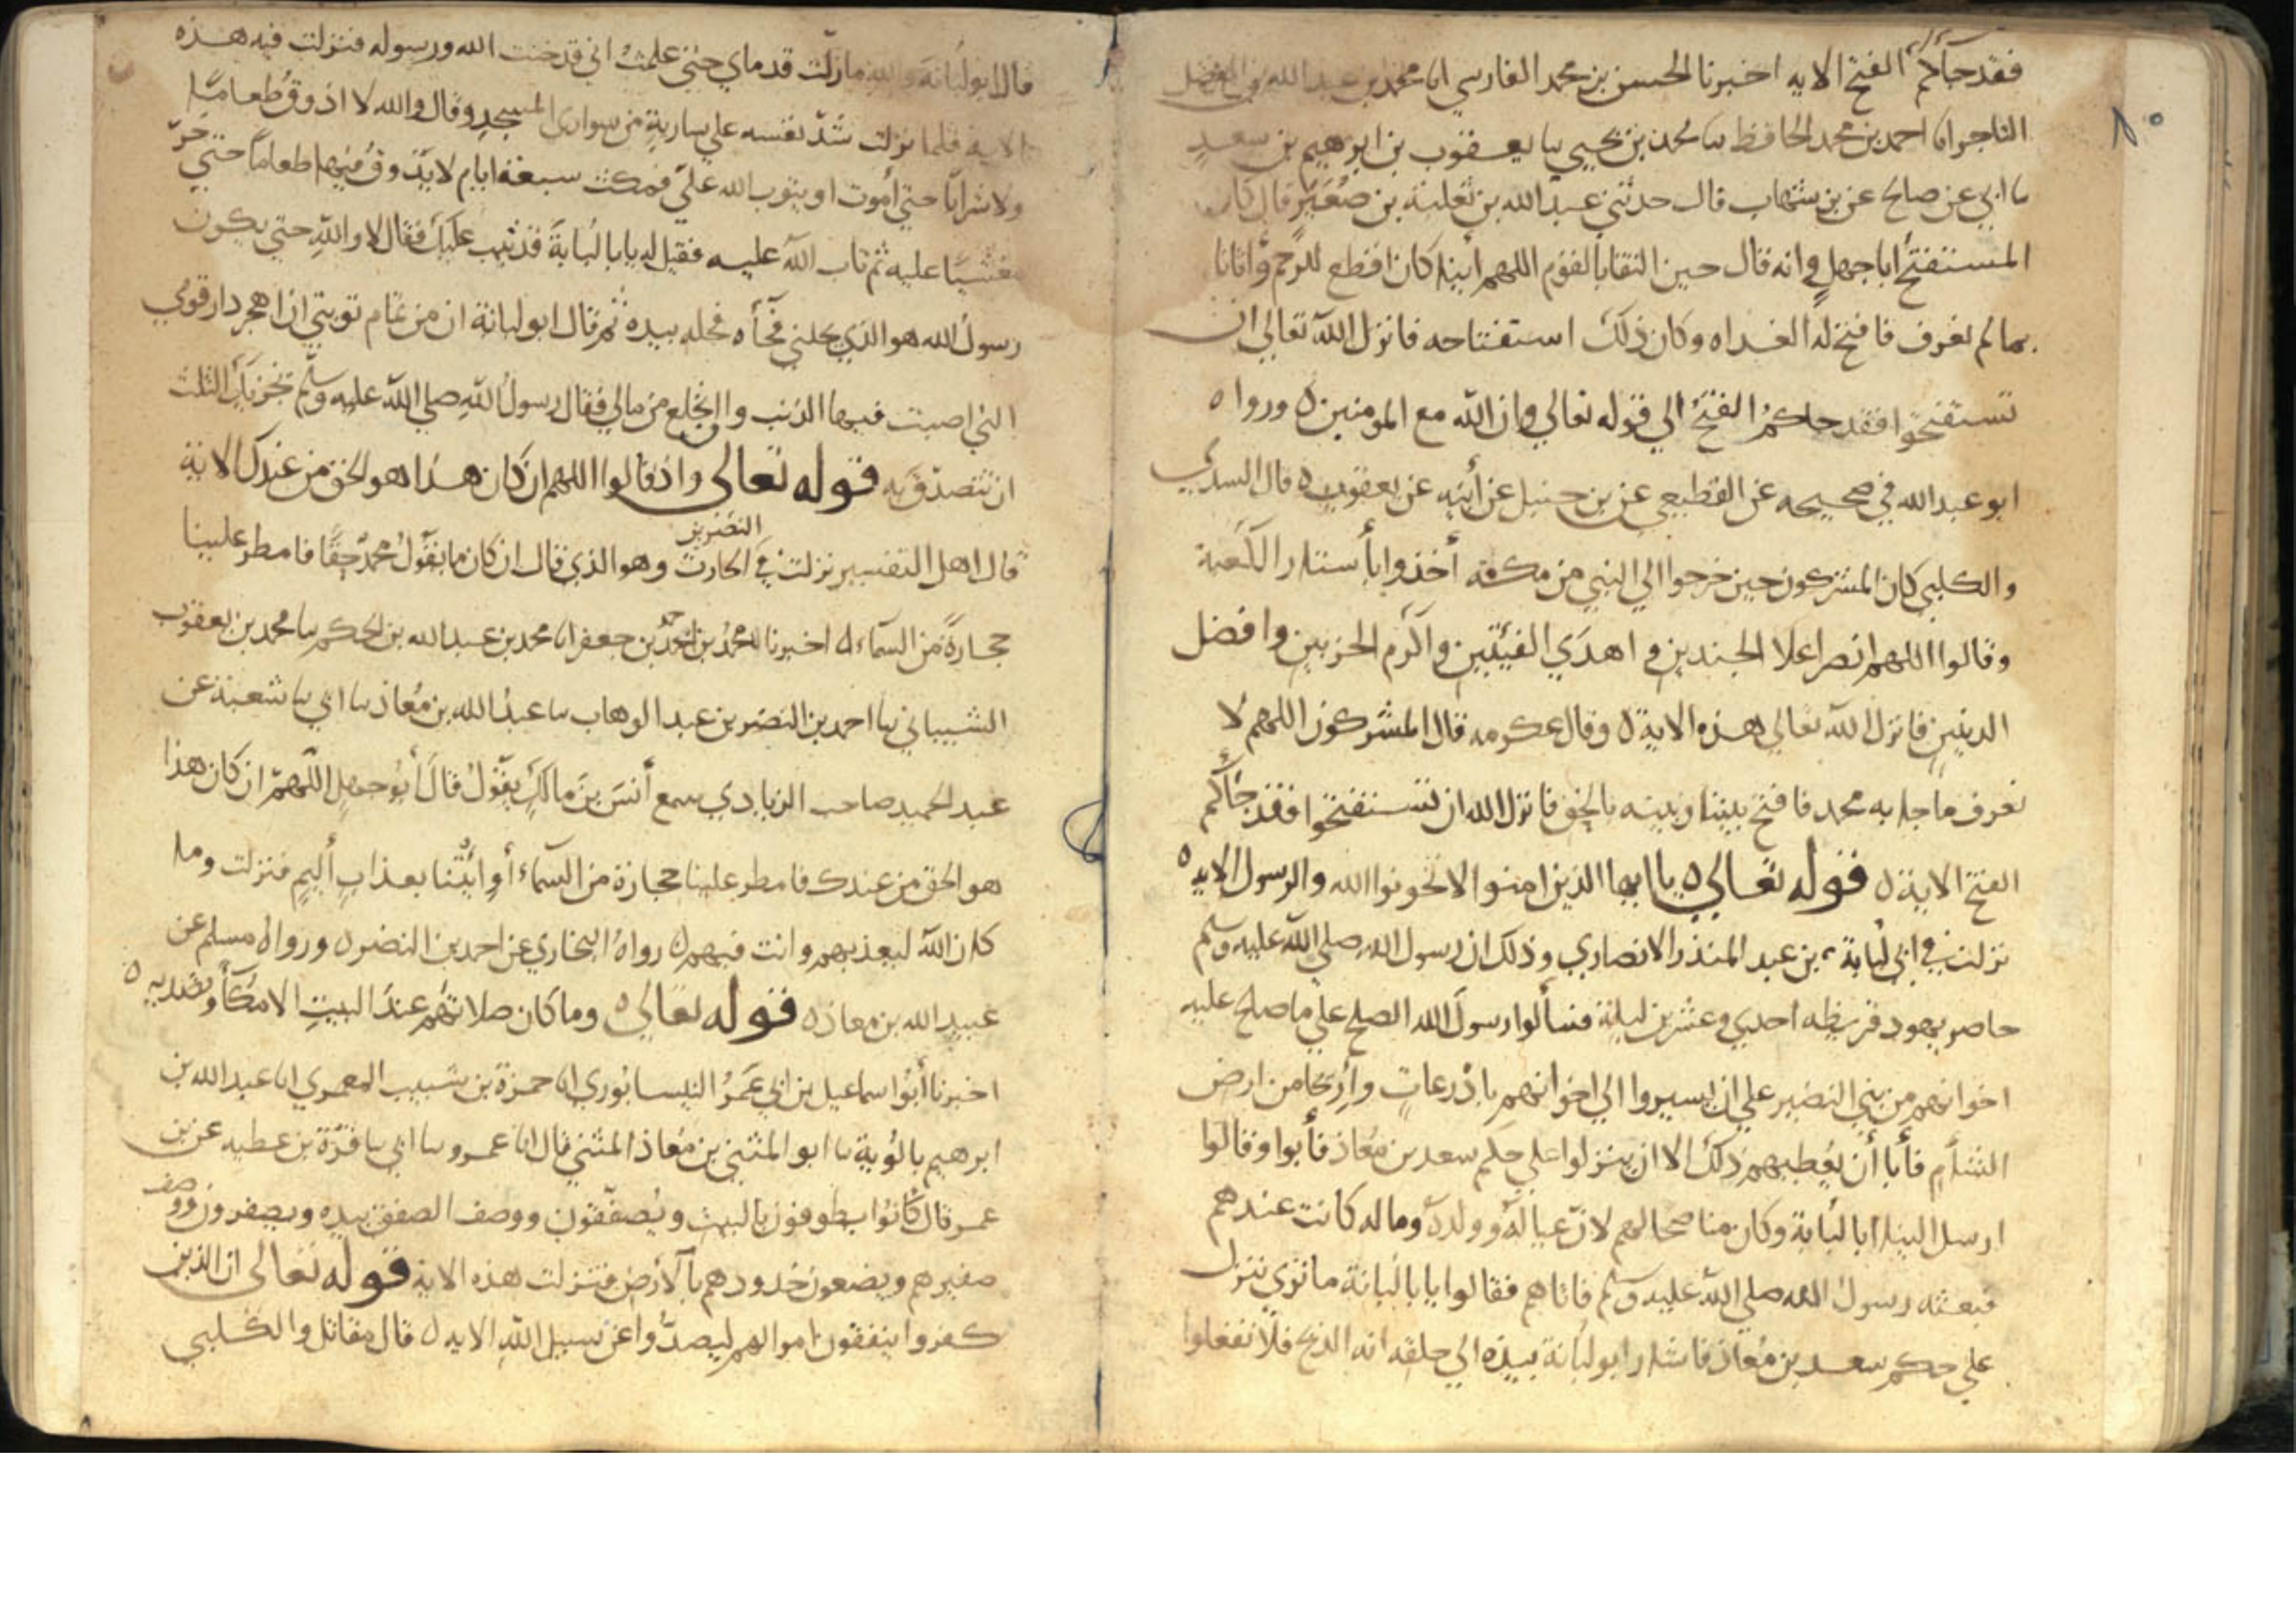 فقد جآكم الفتح الايه اخبرنا الحسن بن محمد الفارسي انا محمد بن عبد الله بن الفضل
التاجر انا احمد بن محمد الحافظ سا محمد بن يحيي سا يعقوب بن ابرهيم بن سعد
سا ابي عن صالح عن بن شهاب قال حدثني عبد الله بن ثعلبة بن صُعَير قال كان
المستفتح أبا جهل وانه قال حين التقا بالقوم اللهم أينا كان اقطع للرحم وأتانا
بما لم نعرف فافتح له الغداه وكان ذلك استفتاحه فانزل الله تعالي ان
تستفتحوا فقد جاكم الفتح الي قوله تعالي وان الله مع المومنين ه ورواه
ابو عبد الله في صحيحه عن القطيعي عن بن حنبل عن أبيه عن يعقوب ه قال السدي
والكلبي كان المشركون حين خرجوا الي النبي من مكة أخذوا بأستار الكعبة
وقالوا اللهم انصر اعلا الجندين و اهدَي الفئتين واكرم الحزبين وافضل
الدينين فانزل الله تعالي هذه الاية ه وقال عكرمه قال المشركون اللهم لا
نعرف ما جا به محمد فافتح بيننا وبينه بالحق فانزل الله ان تستفتحوا فقد جآكم
الفتح الاية ه قوله تعالي ه يا ايها الذين امنوا لا تخونوا الله والرسول الايه ه
نزلت في ابي لبابة بن عبد المنذر الانصاري وذلك ان رسول الله صلي الله عليه وسلم
حاصر يهود قريظه احدي وعشرين ليلة فسألوا رسول الله الصلح علي ما صالح عليه
اخوانهم من بني النضير علي ان يسيروا الي اخوانهم باذرعات وأريحا من ارض
الشأم فأبا أن يعطيهم ذلك الا ان ينزلوا علي حكم سعد بن معاذ فأبوا وقالوا
ارسل الينا ابا لبابة وكان مناصحا لهم لان عياله وولده وماله كانت عندهم
فبعثه رسول الله صلي الله عليه وسلم فاتاهم فقالوا يابا لبابة ما تري ننزل
علي حكم سعد بن معاذ فاشار ابو لبابة بيده الي حلقه انه الذبح فلا تفعلوا
قال ابو لبابة والله مازلت قدماي حتي علمت اني قد خنت الله ورسوله فنزلت فيه هذه
الايه فلما نزلت شد نفسه علي سارية من سواري المسجد وقال والله لا اذوق طعاما
ولا شرابا حتي أموت او يتوب الله علي فمكث سبعة ايام لا يذوق فيها طعاما حتي خر
مغشيا عليه ثم تاب الله عليه فقيل له يابا لبابة قد تيب عليك فقال لا والله حتي يكون
رسول الله هو الذي يحلني فجآه فحله بيده ثم قال ابو لبابة ان من تمام توبتي ان اهجر دار قومي
التي اصبت فيها الذنب وان انخلع من مالي فقال رسول الله صلي الله عليه وسلم يجزيك الثلث
ان تتصدق به قوله تعالى واذ قالوا اللهم ان كان هذا هو الحق من عندك الاية
قال اهل التفسير نزلت في النضر بن الحارث وهو الذي قال ان كان ما يقول محمد حقا فامطر علينا
حجارة من السماء ه اخبرنا محمد بن احمد بن جعفر انا محمد بن عبد الله بن الحكم سا محمد بن يعقوب
الشيباني سا احمد بن النضر بن عبد الوهاب سا عبد الله بن معاذ سا ابي سا شعبة عن
عبد الحميد صاحب الزيادي سمع أنس بن مالك يقول قال أبو جهل اللهم ان كان هذا
هو الحق من عندك فامطر علينا حجارة من السماء أو ائتنا بعذاب أليم فنزلت وما
كان الله ليعذبهم وانت فيهم ه رواه البخاري عن احمد بن النضر ه ورواه مسلم عن
عبيد الله بن معاذ ه قوله تعالي ه وما كان صلاتهم عند البيت الا مكآ وتصديه ه
اخبرنا أبو اسماعيل بن ابي عمر النيسابوري انا حمزة بن شبيب المعمري انا عبد الله بن
ابرهيم بالوية سا ابو المثني بن معاذ المثني قال انا عمرو سا ابي سا قرة بن عطيه عن بن
عمر قال كانوا يطوفون بالبيت ويصفقون ووصف الصفق بيده ويصفرون ووصف
صفيرهم ويضعون خدودهم بالارض فنزلت هذه الاية قوله تعالى ان الذين
كفروا ينفقون اموالهم ليصدوا عن سبيل الله الايه ه قال مقاتل والكلبي